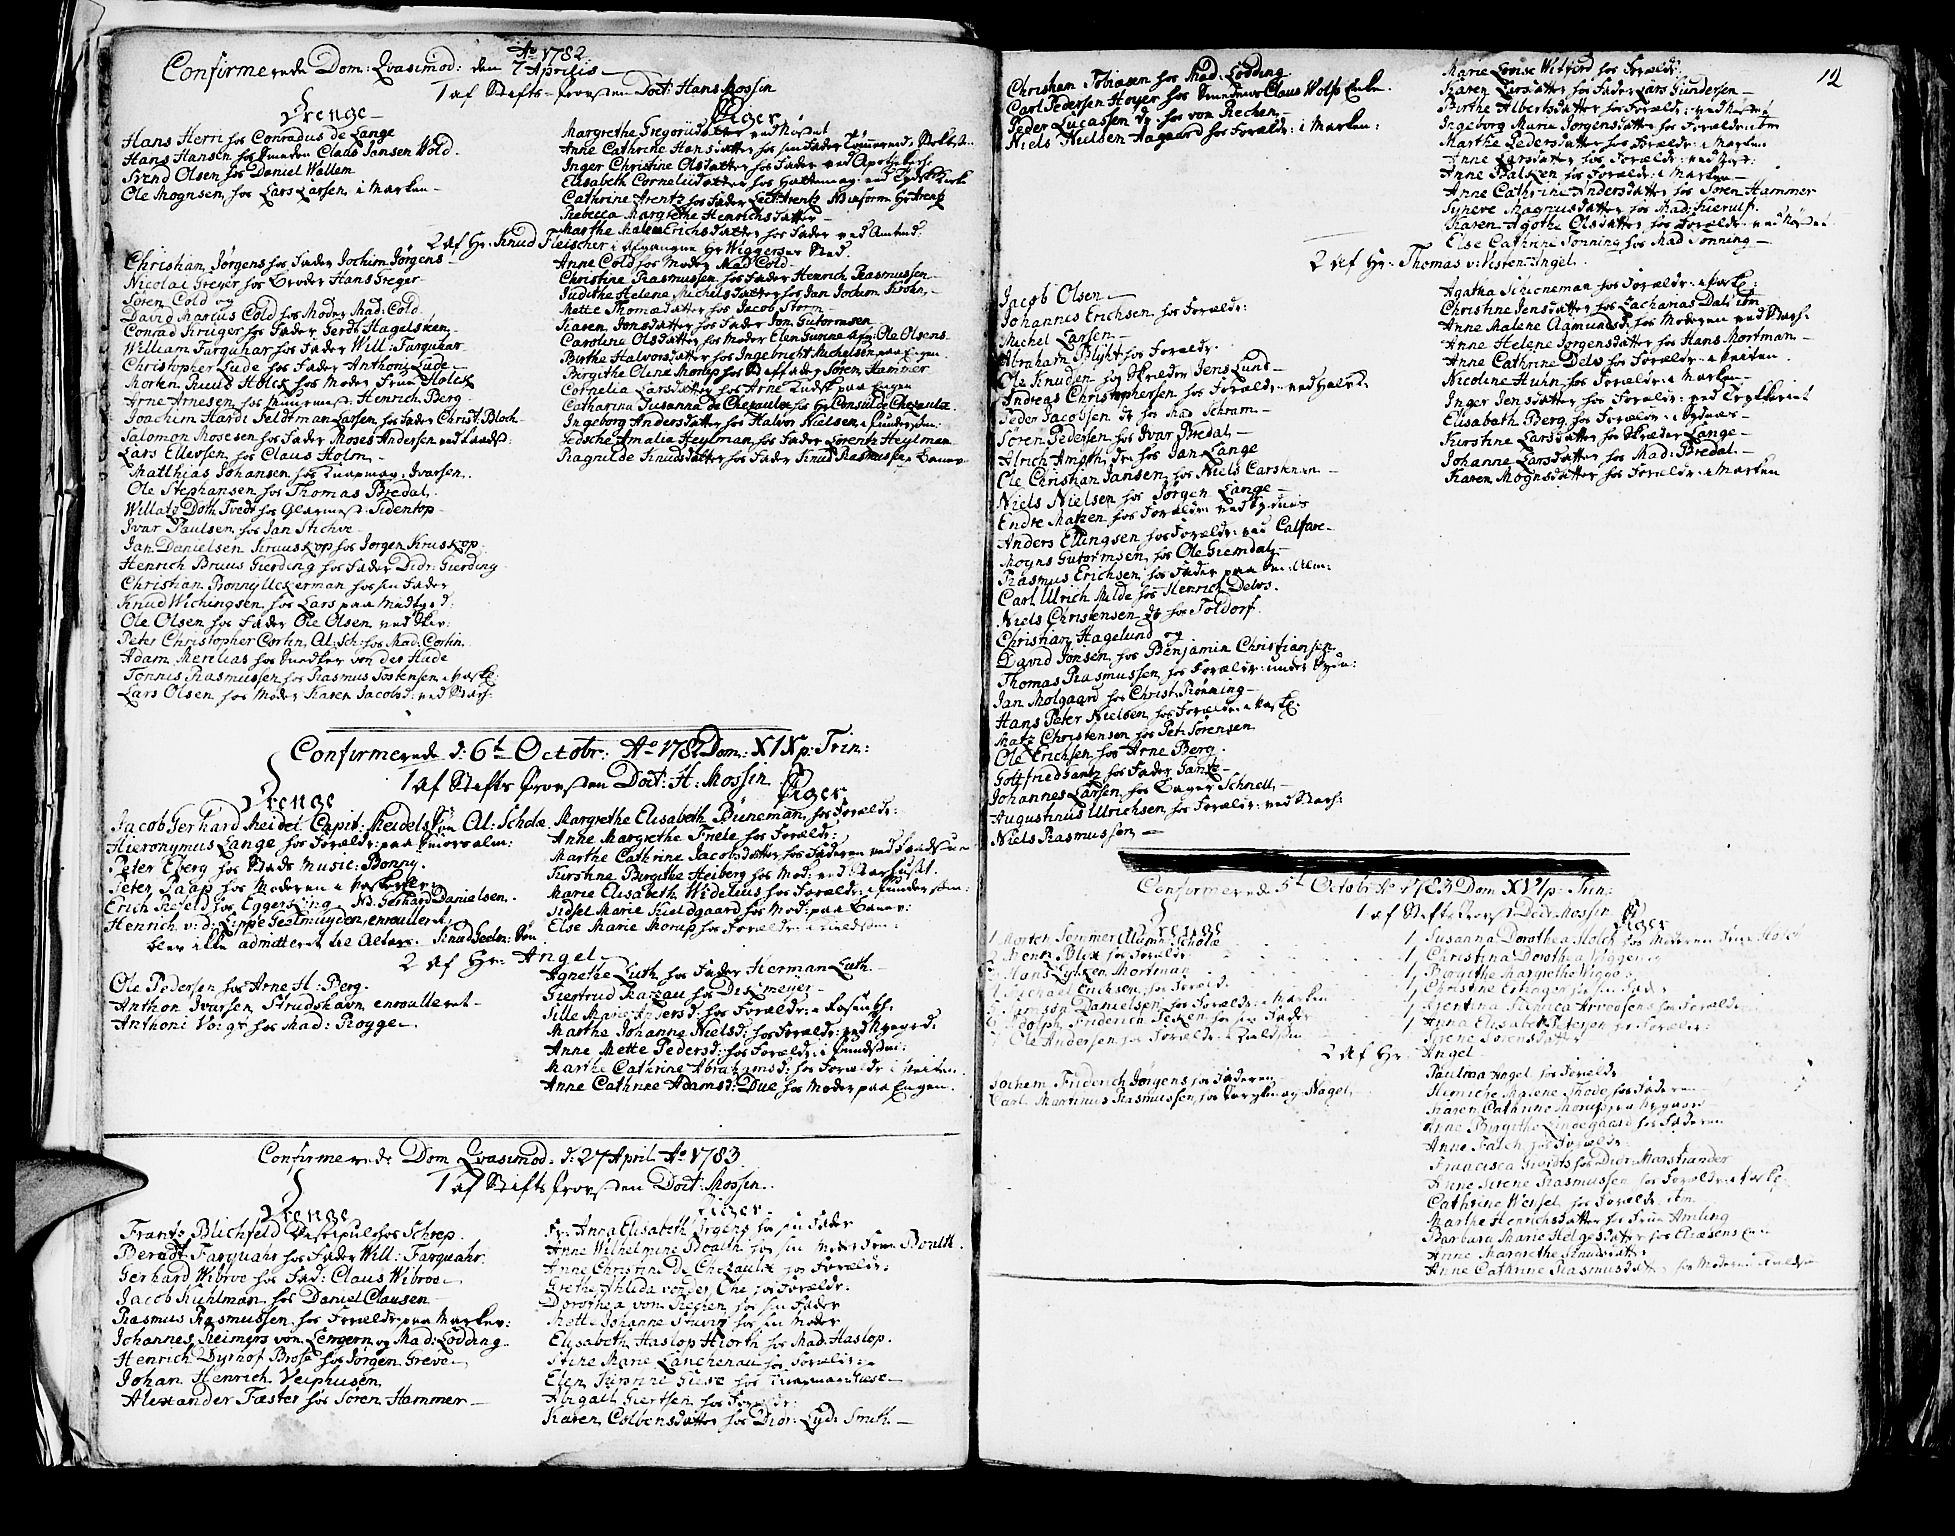 Aō 1782
Confirmerede Dom: Qvasimod: den 7 Aprilis
1 af Stifts-Provsten Doct: Hans Mossin
Drenge
Hans Herri hos Conradus de Lange
Hans Hansen hos Claus Jansen Wold.
Svend Olsen hos Daniel Wallem
Ole Mognsen, hos Lars Larsen i Marken
Piger
Margrethe Gregoriidatter ved Nøstet
Anne Cathrine Hansdatter hos sin Fader
Inger Christine Olsdatter hos Fader ved Apothekert
Elisabeth Corneliidatter hos
Cathrine Arentz hos Fader Lect: Arentz
Rebecca Margrethe Henrichsdatter
Marthe Malene Erichsdatter hos Fader ved
2 af Hr: Knud Fleischer i afgangne Hr Wiggers Sted.
Christian Jørgens hos Fader Jochim Jørgens
Nicolai Greger hos Broder Hans Greger
Søren Cold og
David Marius Cold hos Moder Mad: Cold
Conrad Krüger hos Fader Gerdt Hagelsken
William Farquhar hos Fader Will: Farquhar
Christopher Lude hos Fader Anthon Lude
Morten Ruud Holck hos Moder Frue Holck
Arne Arnesen hos Henrich Berg
Joachim Hardi Feldtman Larsen hos Fader Christ: Bloch
Salomon Mosesen hos Fader Moses Andersen ved
Lars Ellevsen hos Claus Holm
Matthias Johansen hos Ivarsen.
Ole Stephansen hos Thomas Bredal.
Willatz Doth Tvedt hos Glarmest: Sidentop
Ivar Paulsen hos Jan Stichve
Jan Danielsen Kruuskop hos Jørgen Kruskop.
Henrich Bruus Gierding hos Fader Didr: Gierding
Christian Bonny Uckerman hos sin Fader
Knud Wichingsen hos Lars paa
Ole Olsen hos Fader Ole Olsen ved
Peter Christopher Cortin Al: Sch: hos Mad: Cortin
Adam Merilias hos von der Hude
Tonnis Rasmussen hos Rasmus Tostensen
Lars Olsen hos Moder Karen Jacobsd: ved
Anne Cold hos Moder Mad Cold
Christine Rasmussen hos Fader Henrich Rasmussen
Judithe Helene Michelsdatter hos Jan Jochim Krohn
Mette Thomasdatter hos Jacob Storm
Karen Jonsdatter hos Fader Jon Gutormsen
Carolina Olsdatter hos Moder Elen Gurine afg: Ole Olsens
Birthe Halvorsdatter hos Ingebricht Michelsen paa Engen
Birgithe Oline Morup hos Søren Hammer
Cornelia Larsdatter hos Arne paa Engen
Catharina Susanna de Chezaulx hos Hr Consul de Chezaulx.
Ingeborg Andersdatter hos Halvor Nielsen
Fedsche Amalia Heylman hos Fader Lorentz Heylman
Ragnilde Knudsdatter hos Fader Knud Rasmussen,
Confirmerede d: 6t Octobr: Aō 1782 Dom: XIX p: Trin:
1 af Stifts Provsten Doct: H: Mossin
Drenge
Jacob Gerhard Meidel Capit: Meidels Søn Al: Scholæ
Hieronymus Lange hos Forældr: paa Smørsalm:
Peter Eberg hos Stads Music: Bonny.
Peter Paap hos Moderen
Erich Refeld hos Eggerking. NB. Gerhard Danielsen.
Henrich v: d: Lippe Geelmuyden, enroulleret,
blev ikke admitteret til Alters. Knud Geelm: Søn
Piger
Margrethe Elisabeth Büneman, hos Forældr:
Anne Margrethe Friele hos Forældr:
Marthe Cathrine Jacobsdatter hos Faderen ved
Kirstine Birgithe Heiberg hos Mod: ved
Marie Elisabeth Widelius hos Forældr:
Sidsel Marie Kieldgaard hos Mod: paa
Else Marie Morup hos Forældr:
2 af Hr: Angel
Ole Pedersen hos Arne H: Berg.
Anthon Ivarsen Strudshavn enroulleret
Anthoni Voigt hos Mad: Rogge
Agnethe Luth hos Fader Herman Luth.
Giertrud Razzau hos Dislmeyer
Sille Marie Andersd: hos Forældr:
Marthe Johanne Nielsd: hos Forældr: ved
Anne Mette Pedersd: hos Forældr:
Marthe Cathrine Abrahamsd: hos Forældr
Anne Cathrine Adamsd: Due hos Moder paa Engen.
Confirmerede Dom Qvasimod. d: 27 April Aō 1783
1 af Stifts Provsten Doct: Mossin.
Drenge
Frantz Blichfeld Discipul hos Schrep.
Berndt Farquahr hos Fader Will: Farquahr
Gerhard Wibroe hos Fad: Claus Wibroe
Jacob Kuhlman, hos Daniel Clausen
Rasmus Rasmussen hos Forældr: paa Marken:
Johannes Reimers von Lengern, og Mad: Lodding
Henrich Dyrhof Brose hos Jørgen Greve
Johan Henrich Veiphusen
Alexander Fæster hos Søren Hammer
Piger
Anna Elisabeth Jrgens hos sin Fader
Anne Wilhelmine Boalth hos sin Moder Frue Boalth.
Anne Christine De Chezaulx hos Forældr:
Grethe Ahlida von der Ohe hos Forældr:
Dorothea von Rechen hos sin Fader
Mette Johanne Stüving hos sin Moder
Elisabeth Haslop Hiorth hos Mad: Haslop.
Stine Marie Lanchenau hos Forældr:
Elen Kirstine Giese hos Giese
Abigael Giertsen hos Forældr:
Karen Colbensdatter hos Didr: Lyd: Smith.
12
Christian Tobiasen hos Mad: Lodding
Carl Pedersen Høyer hos Claus Wolfs Enke.
Peder Lucassen do hos von Rechen.
Niels Nielsen Aagaard hos Forældr: i Marken:
Marie Lovise Witford hos Forældr:
Karen Larsdatter hos Fader Lars Gundersen
Birthe Albertsdatter hos Forældr: ved Nøstet
Ingeborg Marie Jørgensdatter hos Forældr: ibm
Marthe Pedersdatter hos Forældr: i Marken
Anne Larsdatter hos Forældr: ved
Anne Balken hos Forældr: i Marken
Anne Cathrine Andersdatter hos Søren Hammer
Syneve Magnusdatter hos Mad: Kierulf.
Karen Agothe Olsdatter hos Forældr. ved Nøstet
Else Cathrine Tønning hos Mad Tønning
2 af Hr: Thomas v: Westen Angel.
Jacob Olsen
Johannis Erichsen hos Forældr:
Michel Larsen
Abraham Blyht hos Forældr:
Ole Knudsen hos Skræder Jens Lund
Andreas Christophersen hos Forældr: ved
Peder Jacobsen do hos Mad Schram
Søren Pedersen hos Ivar Bredal
Alrich Amsth: do hos Jan Lange
Ole Christian Jansen hos Niels Carstensen
Niels Nielsen hos Jørgen Lange
Endre Matzen hos Forældr: ved
Anders Ellingsen hos Forældr: ved Calfare
Moyns Gutormsen, hos Ole Giemdal
Rasmus Erichsen, hos Fader paa
Carl Ulrich Milde hos Henrich Delvs.
Niels Christensen do hos Toldorf.
Christian Hagelund og
David Jonsen, hos Benjamin Christiansen
Thomas Rasmussen, hos Forældr: under
Jan Molgaard hos Christ: Rønning
Hans Peter Nielsen, hos Forældr:
Matz Christensen hos Pet: Sørensen
Ole Erichsen hos Arne Berg.
Gottfried Gantz hos Fader Gantz
Johannes Larsen, hos Bager Schnell,
Augustinus Ulrichsen, hos Forældr: ved
Niels Rasmussen,
Agatha Schieneman hos Forældr:
Christine Jensdatter hos Zacharias Dal ibm
Anne Malene Aamundsd: hos Moderen ved
Anne Helene Jørgensdatter hos Hans Mortman
Anne Cathrine Delvs hos Forældr:
Nicoline Huhn, hos Forældr: i Marken
Inger Jensdatter hos Forældr: ved
Elisabeth Berg hos Forældr: i
Kirstine Larsdatter hos Skræder Lange
Johanne Larsdatter hos Mad: Bredal.
Karen Mognsdatter hos Forældr: i Marken
Confirmerede 5t Octobr Aō 1783 Dom XVI p: Trin:
1 af Stifts Provst Doct: Mossin
Drenge
1 Morten Sommer Alumn: Scholæ
2 Bentz Blix hos Forældr
3 Hans Lykken Mortman
4 Michael Erichsen, hos Forældr:
5 Samson Danielsen, hos Forældr: i Marken
6 Adolph Friderich Tecken hos sin Fader
7 Ole Andersen hos Forældr:
Piger
1, Susanna Dorothea Holck hos Moderen Frue Holck
1, Christina Dorothea Wiggers
1, Birgithe Margrethe Wiggers
1, Christine hos sin Fader
1, Arvedsen hos Forældr:
1, Anna Elisabeth Petersen hos Forældr:
Sirene Sørensdatter
2 af Hr: Angel
Jochem Friderich Jørgens hos Faderen
Carl Martinus Rasmussen, hos Nagel,
Paulina Angel hos Forældr
Henriche Malene Thode hos Faderen
Karen Cathrine Morup
Anne Birgithe Lindegaard hos Faderen
Anne Falch hos Forældr:
Francisca hos Didr: Marstrander
Anne Sirene Rasmussen hos Forældr:
Cathrine Wessel hos Forældr ibm
Marthe Henrichsdatter hos Frue Amling
Barbara Marie Helgesdatter hos
Anne Margrethe Knudsdatter
Anne Cathrine Rasmusdatter hos Moderen